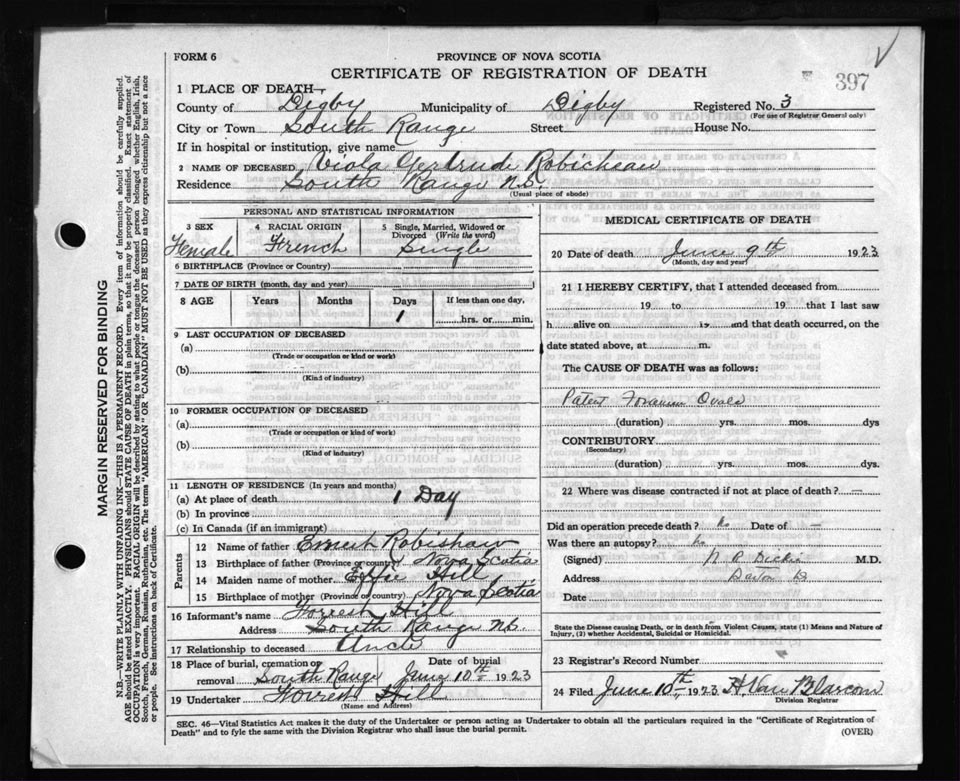 FORM 6
PROVINCE OF NOVA SCOTIA
CERTIFICATE OF REGISTRATION OF DEATH
397
1 PLACE OF DEATH—
County of Digby Municipality of Digby Registered No. 3
(For use of Registrar General only)
City or Town South Range Street House No.
If in hospital or institution, give name
2 NAME OF DECEASED Viola Gertrude Robicheau
Residence South Range N.S.
(Usual place of abode)
PERSONAL AND STATISTICAL INFORMATION
3 SEX Female
4 RACIAL ORIGIN French
5 Single, Married, Widowed or Divorced (Write the word) Single
6 BIRTHPLACE (Province or Country)
7 DATE OF BIRTH (month, day and year)
8 AGE Years Months Days If less than one day,
1 hrs. or min.
9 LAST OCCUPATION OF DECEASED
(a)
(Trade or occupation or kind or work)
(b)
(Kind of industry)
10 FORMER OCCUPATION OF DECEASED
(a)
(Trade or occupation or kind of work)
(b)
(Kind of industry)
11 LENGTH OF RESIDENCE (In years and months)
(a) At place of death 1 Day
(b) In province
(c) In Canada (if an immigrant)
Parents
12 Name of father Ernest Robishaw
13 Birthplace of father (Province or country) Nova Scotia
14 Maiden name of mother Effie Hill
15 Birthplace of mother (Province or country) Nova Scotia
16 Informant's name Forrest Hill
Address South Range N.S.
17 Relationship to deceased Uncle
18 Place of burial, cremation or removal South Range Date of burial June 10th 1923
19 Undertaker Forrest Hill
(Name and Address)
MEDICAL CERTIFICATE OF DEATH
20 Date of death June 9th 1923
(Month, day and year)
21 I HEREBY CERTIFY, that I attended deceased from
19 to 19 that I last saw
h alive on 19 and that death occurred, on the
date stated above, at m.
The CAUSE OF DEATH was as follows:
Patent Foramen Ovale
(duration) yrs. mos. dys
CONTRIBUTORY
(Secondary)
(duration) yrs. mos. dys.
22 Where was disease contracted if not at place of death? —
Did an operation precede death? No Date of —
Was there an autopsy? No
(Signed) M.D.
Address
Date
State the Disease causing Death, or in death from Violent Causes, state (1) Means and Nature of
Injury, (2) whether Accidental, Suicidal or Homicidal.
23 Registrar's Record Number
24 Filed June 10th 1923 H. Van Blarcom
Division Registrar
SEC. 46—Vital Statistics Act makes it the duty of the Undertaker or person acting as Undertaker to obtain all the particulars required in the "Certificate of Registration of
Death" and to fyle the same with the Division Registrar who shall issue the burial permit.
(OVER)
MARGIN RESERVED FOR BINDING
N.B.—WRITE PLAINLY WITH UNFADING INK—THIS IS A PERMANENT RECORD. Every item of information should be carefully supplied.
AGE should be stated EXACTLY. PHYSICIANS should STATE CAUSE OF DEATH in plain terms, so that it may be properly classified. Exact statement of
OCCUPATION is very important. RACIAL ORIGIN will be described by stating to what people or tongue the deceased person belonged whether English, Irish,
Scotch, French, German, Russian, Ruthenian, etc. The terms "AMERICAN" OR "CANADIAN" MUST NOT BE USED as they express citizenship but not a race
or people. See instructions on back of Certificate.